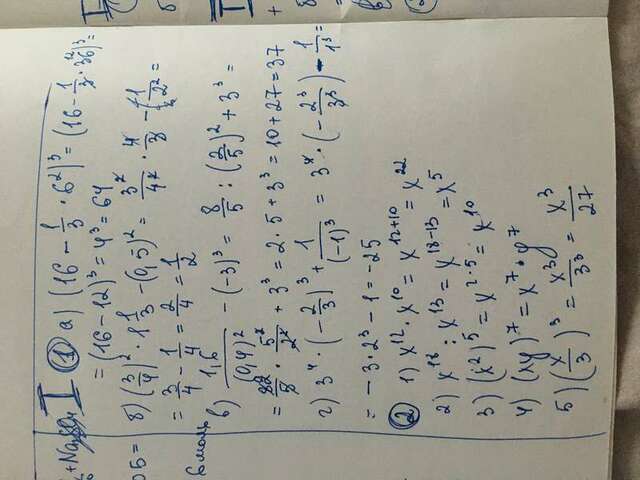 I ① а) (16 - 1/3 · 6²)³ = (16 - 1/3 · 36)³ =
= (16-12)³ = 4³ = 64
б) (3/4)² · 1 1/3 - (0,5)² = 3²/4² · 4/3 - (1/2)² =
= 3/4 - 1/4 = 2/4 = 1/2
в) 1,6/(0,4)² - (-3)³ = 8/5 : (2/5)² + 3³ =
= 8/5 · 5²/2² + 3³ = 2·5 + 3³ = 10 + 27 = 37
г) 3⁴ · (-2/3)³ + 1/(-1)³ = 3⁴ · (-2³/3³) - 1/1³ =
= -3 · 2³ - 1 = -25
② 1) x¹² · x¹⁰ = x¹²⁺¹⁰ = x²²
2) x¹⁸ : x¹³ = x¹⁸⁻¹³ = x⁵
3) (x²)⁵ = x²·⁵ = x¹⁰
4) (xy)⁷ = x⁷ · y⁷
5) (x/3)³ = x³/3³ = x³/27